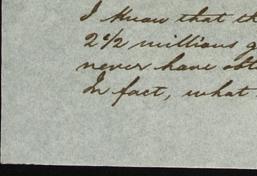 I know that th
2 1/2 millions g
never have obt
In fact, what